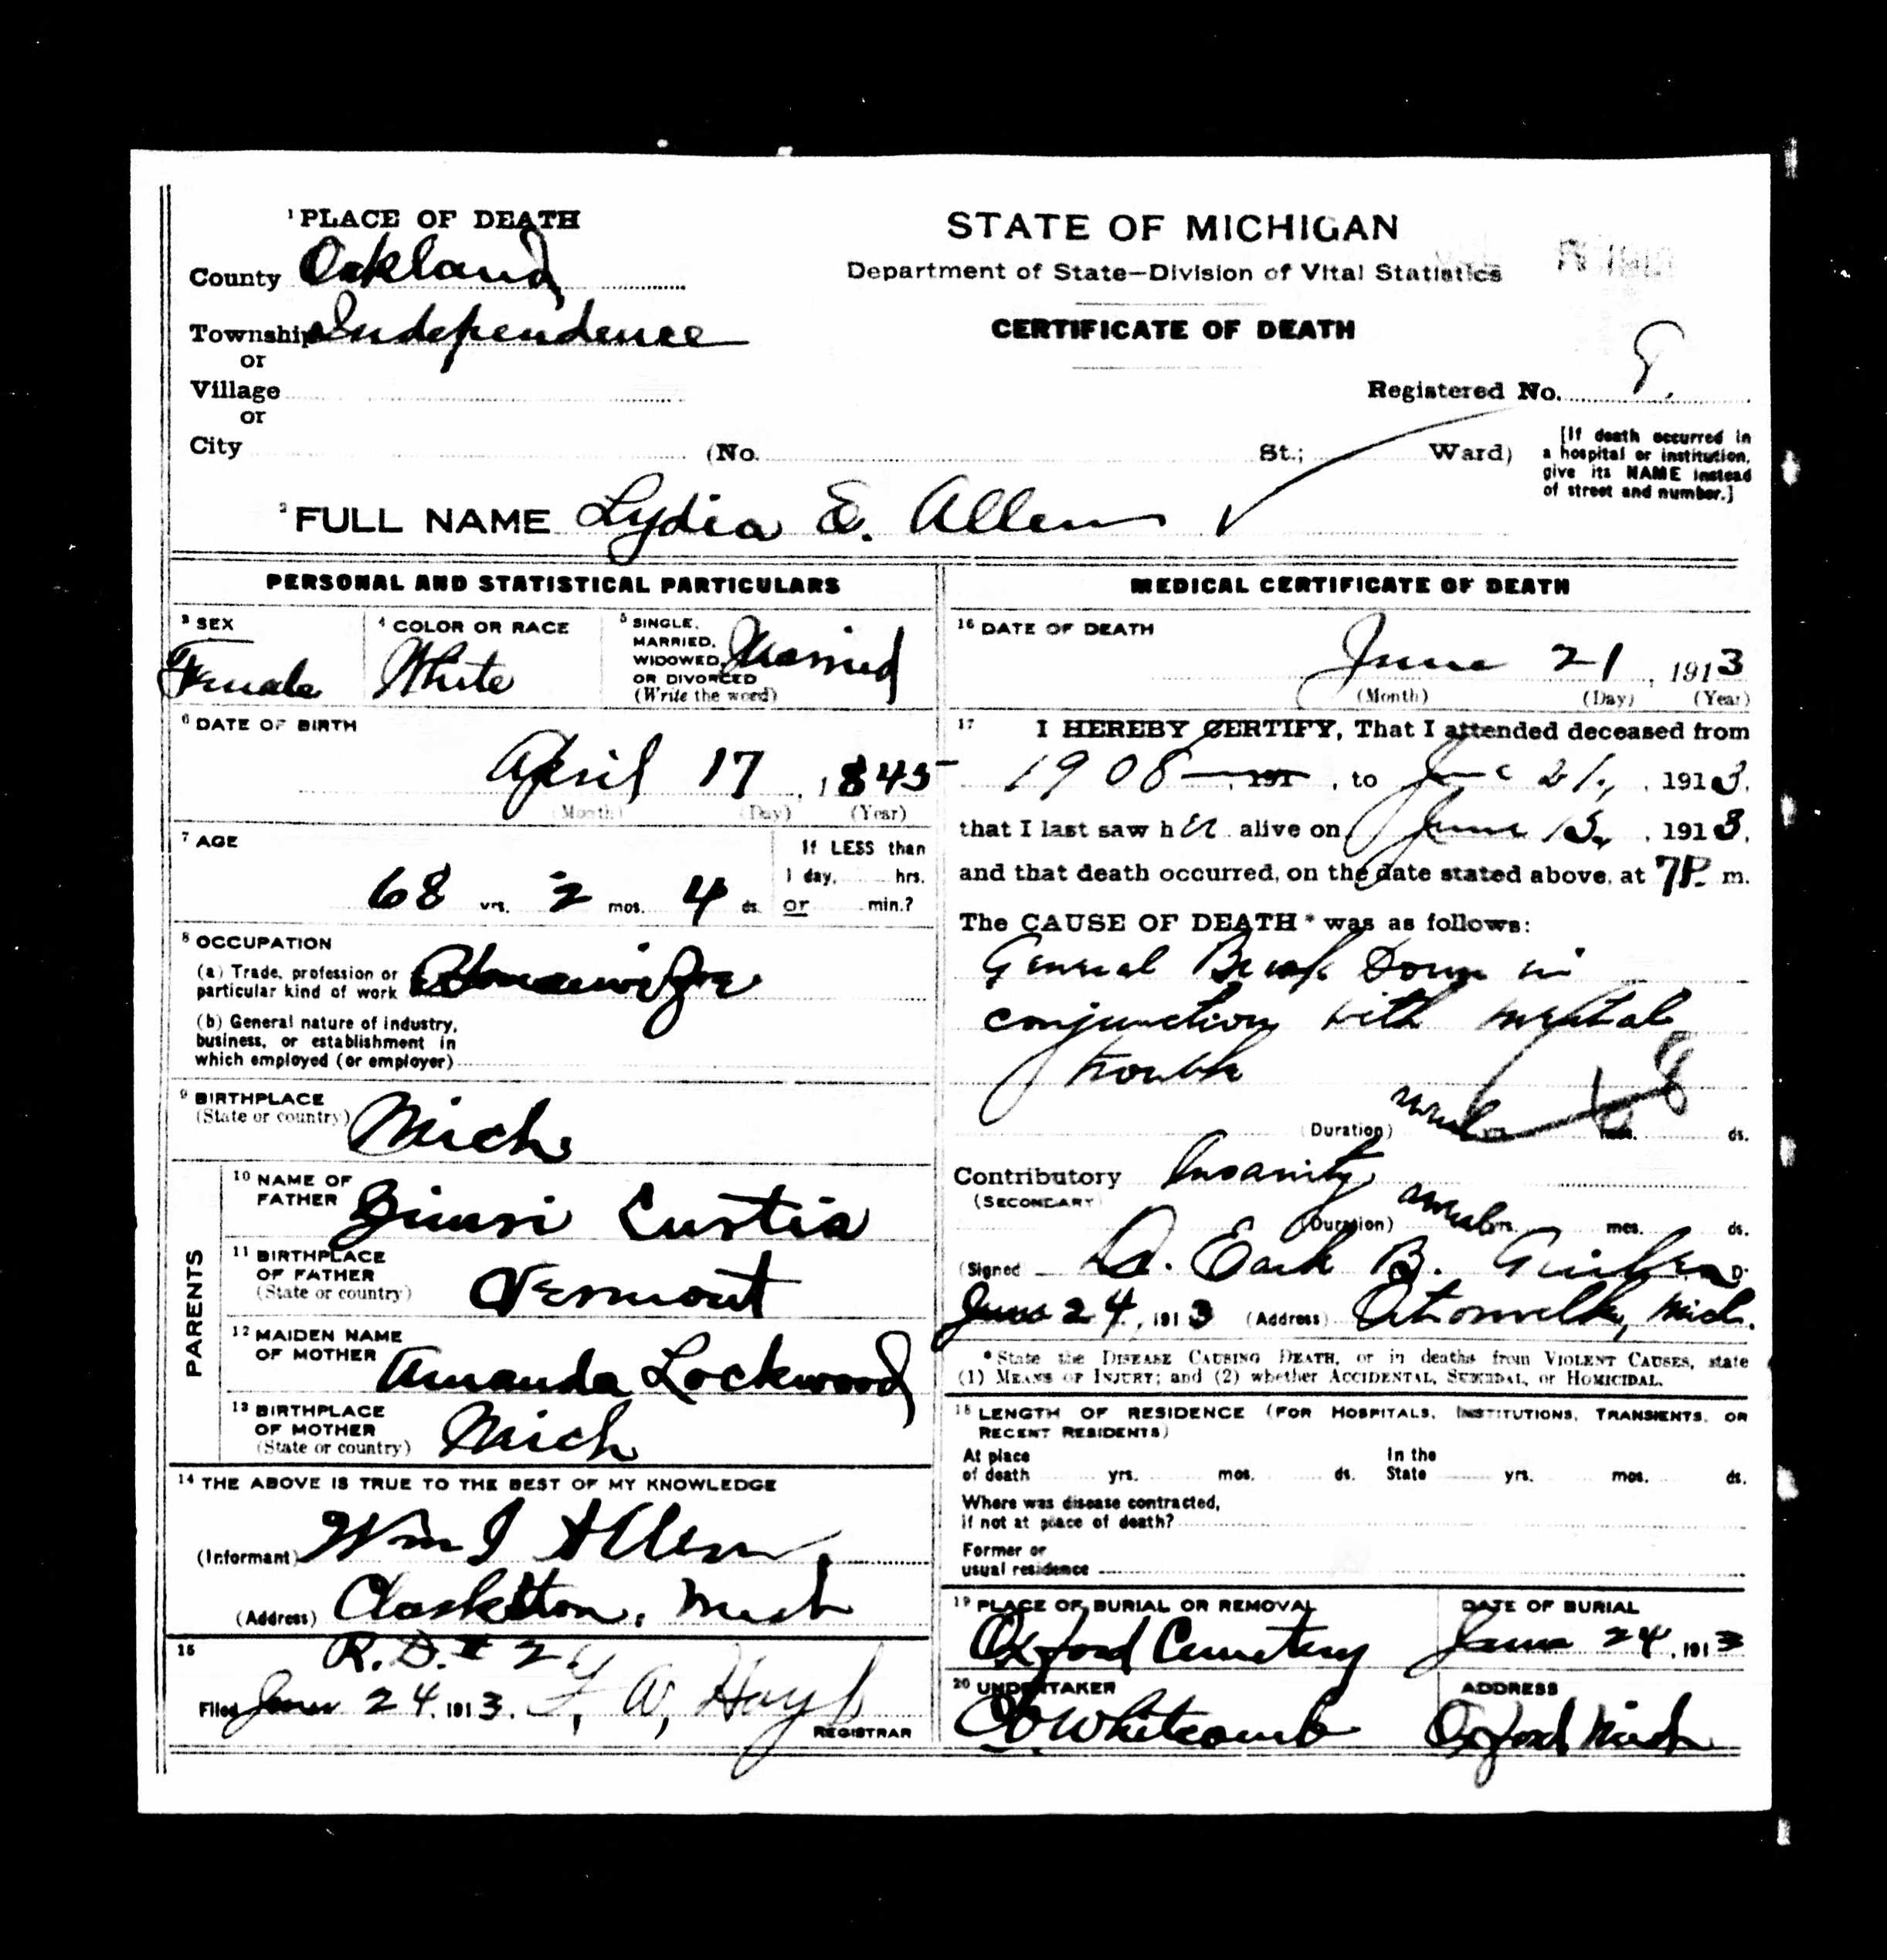 1 PLACE OF DEATH
County Oakland
Township Independence
or
Village
or
City (No. St.; Ward)
STATE OF MICHIGAN
Department of State—Division of Vital Statistics
CERTIFICATE OF DEATH
Registered No.
[If death occurred in
a hospital or institution,
give its NAME instead
of street and number.]
2 FULL NAME Lydia E. Allen
PERSONAL AND STATISTICAL PARTICULARS
3 SEX
Female
4 COLOR OR RACE
White
5 SINGLE,
MARRIED,
WIDOWED,
OR DIVORCED
(Write the word)
Married
6 DATE OF BIRTH
April 17, 1845
(Month) (Day) (Year)
7 AGE
68 yrs. 2 mos. 4 ds.
If LESS than
1 day, hrs.
or min.?
8 OCCUPATION
(a) Trade, profession or
particular kind of work Housewife
(b) General nature of industry,
business, or establishment in
which employed (or employer)
9 BIRTHPLACE
(State or country) Mich
PARENTS
10 NAME OF
FATHER Curtis
11 BIRTHPLACE
OF FATHER
(State or country) Vermont
12 MAIDEN NAME
OF MOTHER Amanda Lockwood
13 BIRTHPLACE
OF MOTHER
(State or country) Mich
14 THE ABOVE IS TRUE TO THE BEST OF MY KNOWLEDGE
(Informant) Wm J Allen
(Address) Clarkston, Mich
R.D. # 2
15
Filed June 24, 1913.
REGISTRAR
MEDICAL CERTIFICATE OF DEATH
16 DATE OF DEATH
June 21, 1913
(Month) (Day) (Year)
17 I HEREBY CERTIFY, That I attended deceased from
1908 , 191 , to June 21, , 1913,
that I last saw her alive on June 13, , 1913,
and that death occurred, on the date stated above, at 7P. m.
The CAUSE OF DEATH * was as follows:
General Break Down in
conjunction with mental
trouble
(Duration) mos. ds.
Contributory Insanity
(SECONDARY)
(Duration) yrs. mos. ds.
(Signed) Dr. Earl B. D.
June 24, 1913 (Address) Ortonville, Mich.
* State the DISEASE CAUSING DEATH, or in deaths from VIOLENT CAUSES, state
(1) MEANS OF INJURY; and (2) whether ACCIDENTAL, SUICIDAL, or HOMICIDAL.
18 LENGTH OF RESIDENCE (FOR HOSPITALS, INSTITUTIONS, TRANSIENTS, OR
RECENT RESIDENTS)
At place
of death yrs. mos. ds.
In the
State yrs. mos. ds.
Where was disease contracted,
if not at place of death?
Former or
usual residence
19 PLACE OF BURIAL OR REMOVAL
Oxford Cemetery
DATE OF BURIAL
June 24, 1913
20 UNDERTAKER
Whitcomb
ADDRESS
Oxford Mich